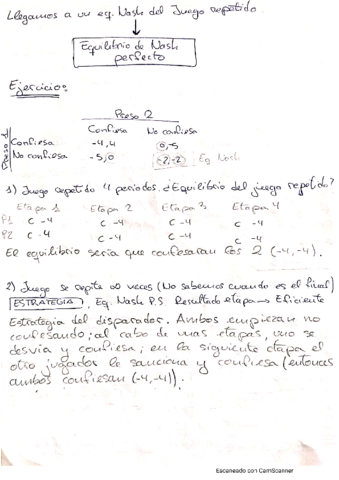 Llegamos a un eq. Nash del Juego repetido.
Equilibrio de Nash
perfecto
Ejercicio:
Preso 2
Confiesa No confiesa
Preso 1
Confiesa -4,4 0,-5
No confiesa -5,0 -2,-2 Eq Nash
1) Juego repetido 4 periodos. ¿Equilibrio del juego repetido?
Etapa 1 Etapa 2 Etapa 3 Etapa 4
P1 C -4 C -4 C -4 C -4
P2 C -4 C -4 C -4 C -4
El equilibrio sería que confesaran los 2 (-4,-4).
2) Juego se repite ∞ veces (No sabemos cuando es el final)
ESTRATEGIA. Eq. Nash P.S Resultado etapa → Eficiente
Estrategia del disparador. Ambos empiezan no
confesando; al cabo de unas etapas, uno se
desvia y confiesa; en la siguiente etapa el
otro jugador le sanciona y confiesa (entonces
ambos confiesan (-4,-4)).
Escaneado con CamScanner